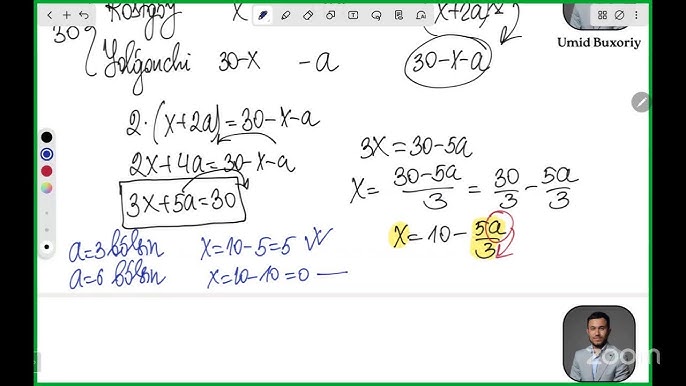 Rostgoy X (x+2a)·2
30 Yolg'onchi 30-x -a 30-x-a
Umid Buxoriy
2·(x+2a)=30-x-a
2x+4a=30-x-a
3x+5a=30
3x=30-5a
x= 30-5a/3 = 30/3 - 5a/3
x=10- 5a/3
a=3 bo'lsin x=10-5=5 ✓
a=6 bo'lsin x=10-10=0 —
zoom